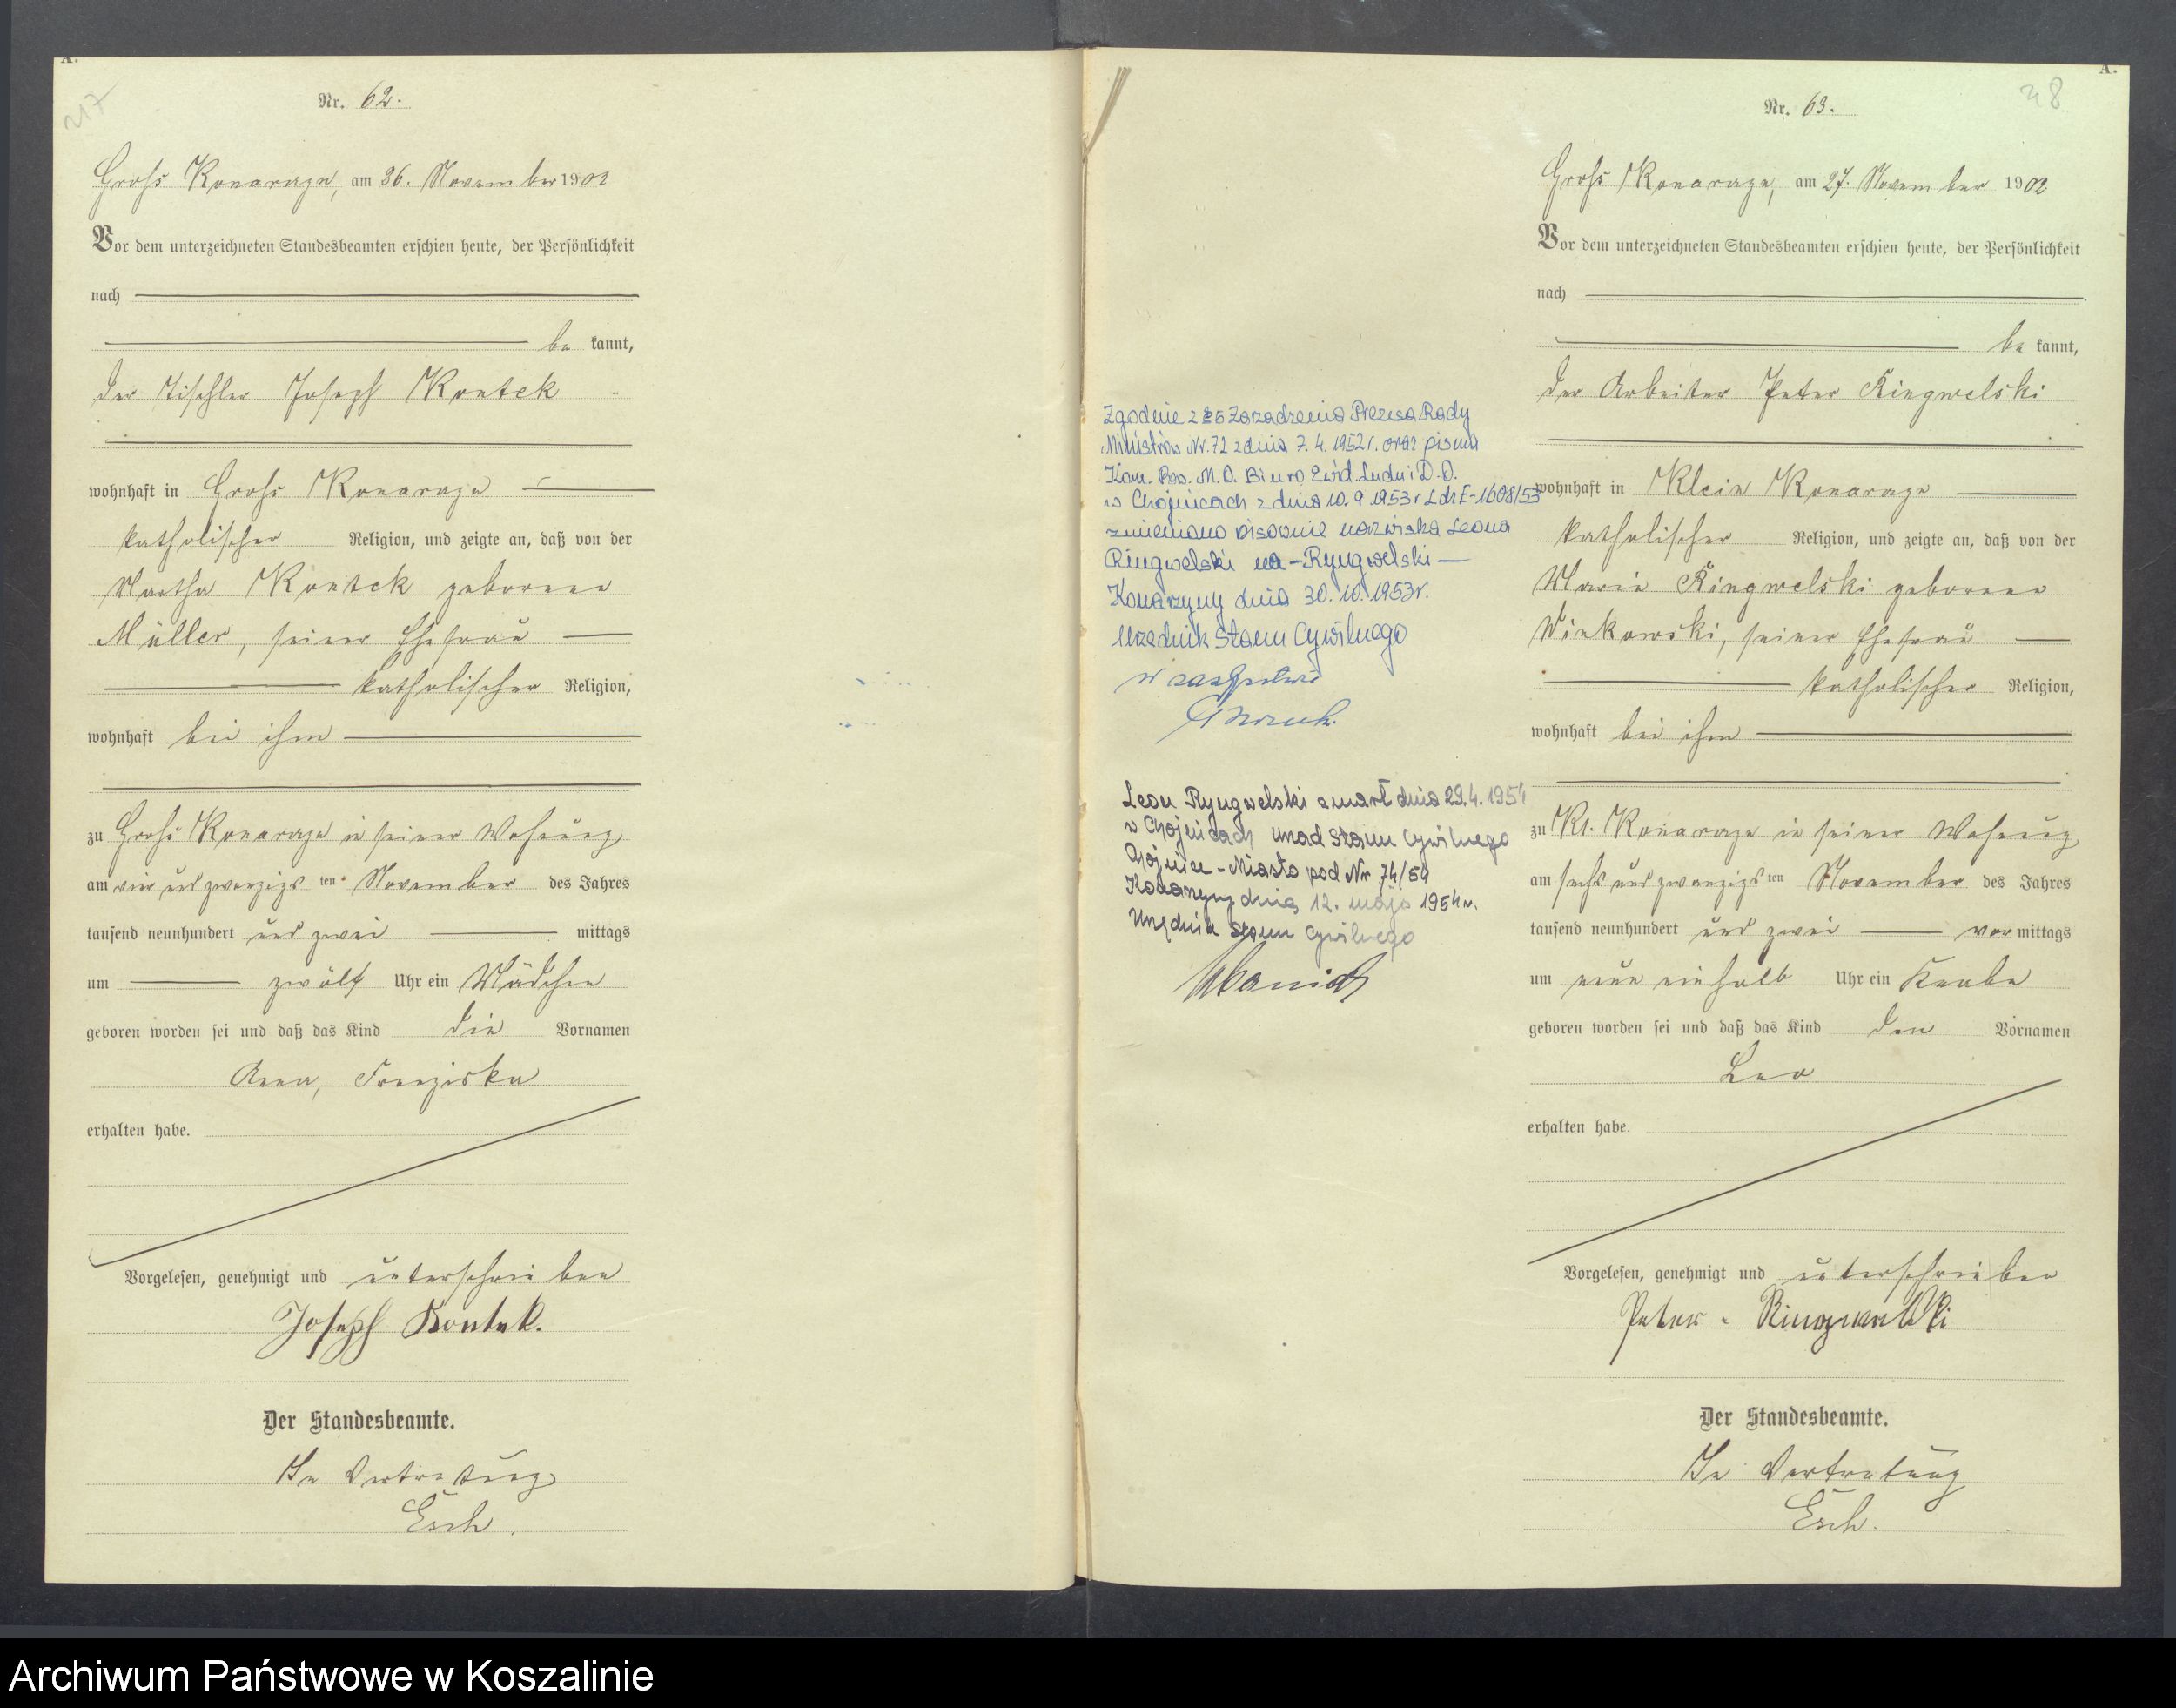 A.
217
Nr. 62.
Gross Konarczyn, am 26. November 1902
Vor dem unterzeichneten Standesbeamten erschien heute, der Persönlichkeit
nach
be kannt,
der Tischler Joseph Kontek
wohnhaft in Gross Konarczyn
katholischer Religion, und zeigte an, daß von der
Martha Kontek geborene
Müller, seiner Ehefrau
katholischer Religion,
wohnhaft bei ihm
zu Gross Konarczyn in seiner Wohnung
am vier und zwanzigs ten November des Jahres
tausend neunhundert und zwei mittags
um zwölf Uhr ein Mädchen
geboren worden sei und daß das Kind die Vornamen
Anna, Franziska
erhalten habe.
Vorgelesen, genehmigt und unterschrieben
Joseph Kontek.
Der Standesbeamte.
In Vertretung
Esch.
Zgodnie z § 5 Zarządzenia Prezesa Rady
Ministrów Nr. 72 z dnia 7. 4. 1952 r. oraz pisma
Kom. Pow. M. O. Biuro Ewid. Ludn i D. O.
w Chojnicach z dnia 10. 9 1953 r L.dz E-1608/53
zmieniono pisownię nazwiska Leona
Ringwelski na - Ryngwelski -
Konarzyny dnia 30. 10. 1953 r.
Urzędnik Stanu Cywilnego
w zastępstwie
Leon Ryngwelski zmarł dnia 29. 4. 1954
w Chojnicach Urząd Stanu Cywilnego
Chojnice - Miasto pod Nr 74/54
Konarzyny dnia 12. maja 1954 r.
Urzędnik Stanu Cywilnego
A.
218
Nr. 63.
Gross Konarczyn, am 27. November 1902
Vor dem unterzeichneten Standesbeamten erschien heute, der Persönlichkeit
nach
be kannt,
der Arbeiter Peter Ringwelski
wohnhaft in Klein Konarczyn
katholischer Religion, und zeigte an, daß von der
Maria Ringwelski geborene
Winkowski, seiner Ehefrau
katholischer Religion,
wohnhaft bei ihm
zu Kl. Konarczyn in seiner Wohnung
am sechs und zwanzigs ten November des Jahres
tausend neunhundert und zwei vor mittags
um neun ein halb Uhr ein Knabe
geboren worden sei und daß das Kind den Vornamen
Leo
erhalten habe.
Vorgelesen, genehmigt und unterschrieben
Peter Ringwelski
Der Standesbeamte.
In Vertretung
Esch.
Archiwum Państwowe w Koszalinie